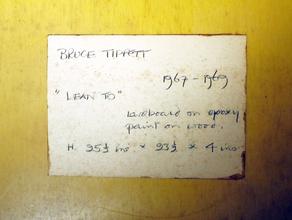 BRUCE TIPPETT
1967 - 1969
" LEAN TO "
on epoxy
paint on wood.
H. 95½ ins × 93½ × 4 ins